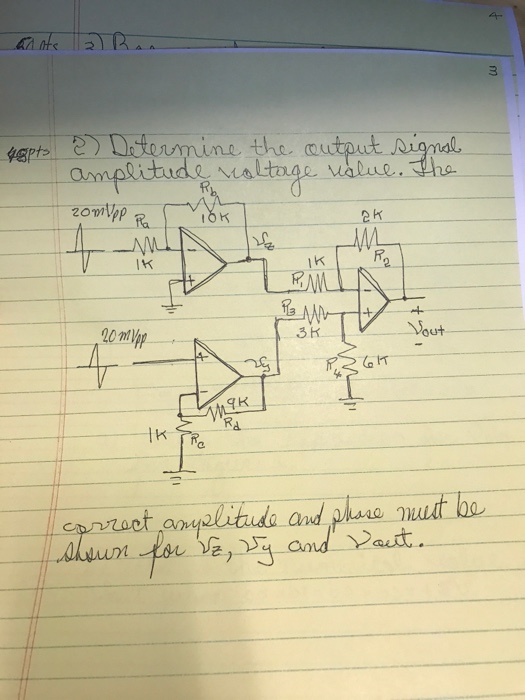 4
3) B
3
2) Determine the output signal
amplitude voltage value. The
20mVpp Ra Rb 10K 2K
1K Vz 1K R2
R1
R3 + Vout -
20mVpp 3K
Vy R4 6K
9K
1K Rc Rd
correct amplitude and phase must be
shown for Vz, Vy and Vout.